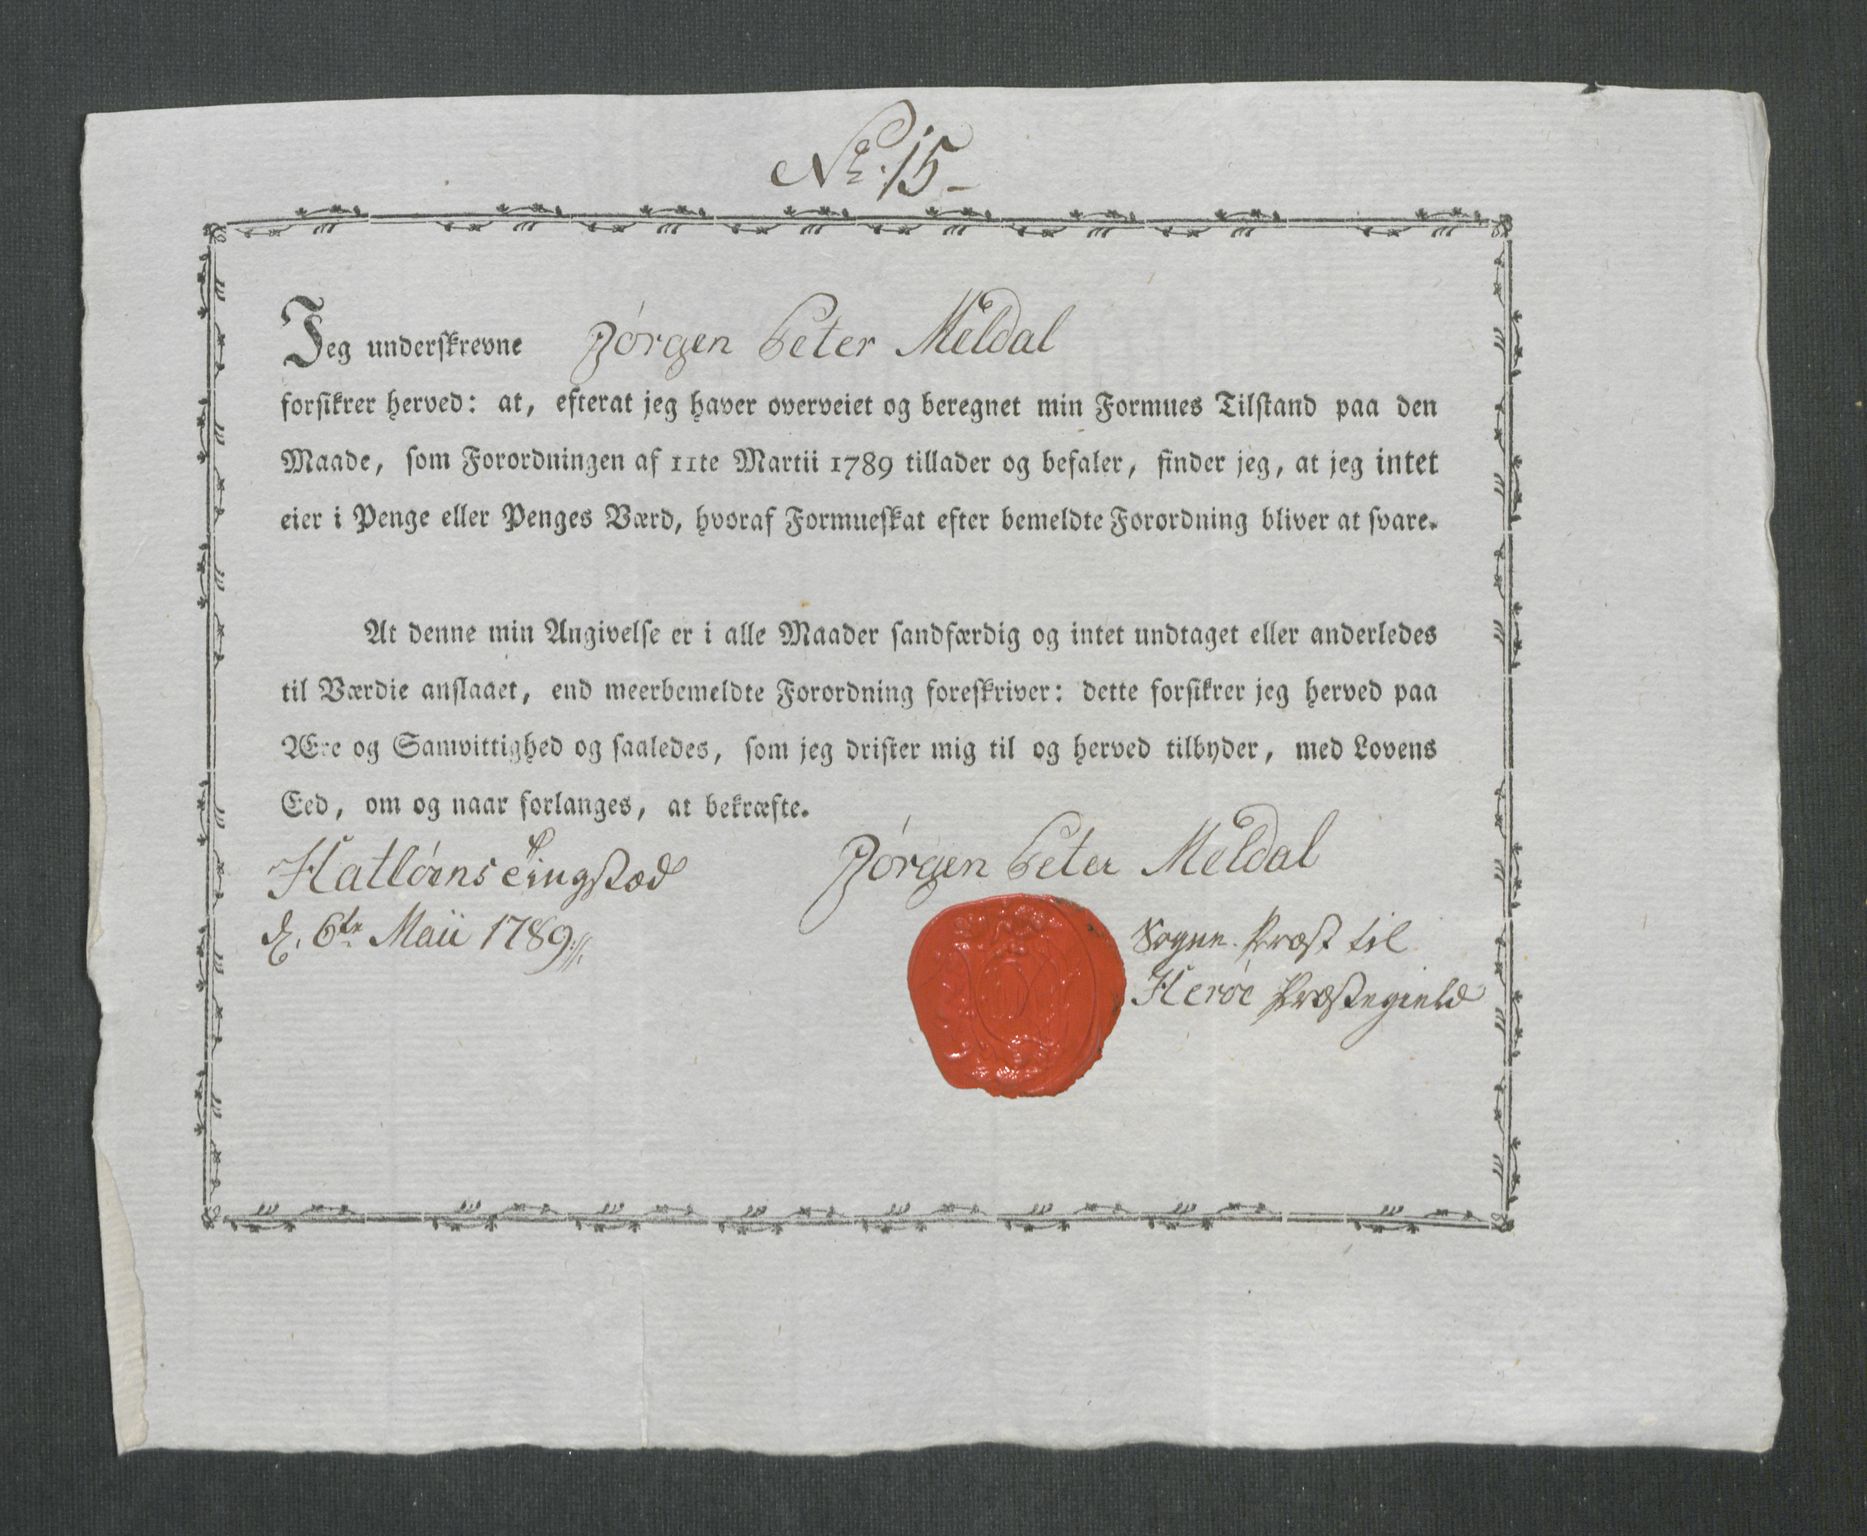 No. 15
Jeg underskrevne Jørgen Peter Meldal
forsikrer herved: at, efterat jeg haver overveiet og beregnet min Formues Tilstand paa den
Maade, som Forordningen af 11te Martii 1789 tillader og befaler, finder jeg, at jeg intet
eier i Penge eller Penges Værd, hvoraf Formueskat efter bemeldte Forordning bliver at svare.
At denne min Angivelse er i alle Maader sandfærdig og intet undtaget eller anderledes
til Værdie anslaaet, end meerbemeldte Forordning foreskriver: dette forsikrer jeg herved paa
Ære og Samvittighed og saaledes, som jeg drister mig til og herved tilbyder, med Lovens
Eed, om og naar forlanges, at bekræfte.
Hatløens Tingstæd
d. 6te Maii 1789
Jørgen Peter Meldal
Sogne-Præst til
Herøe Præstegield